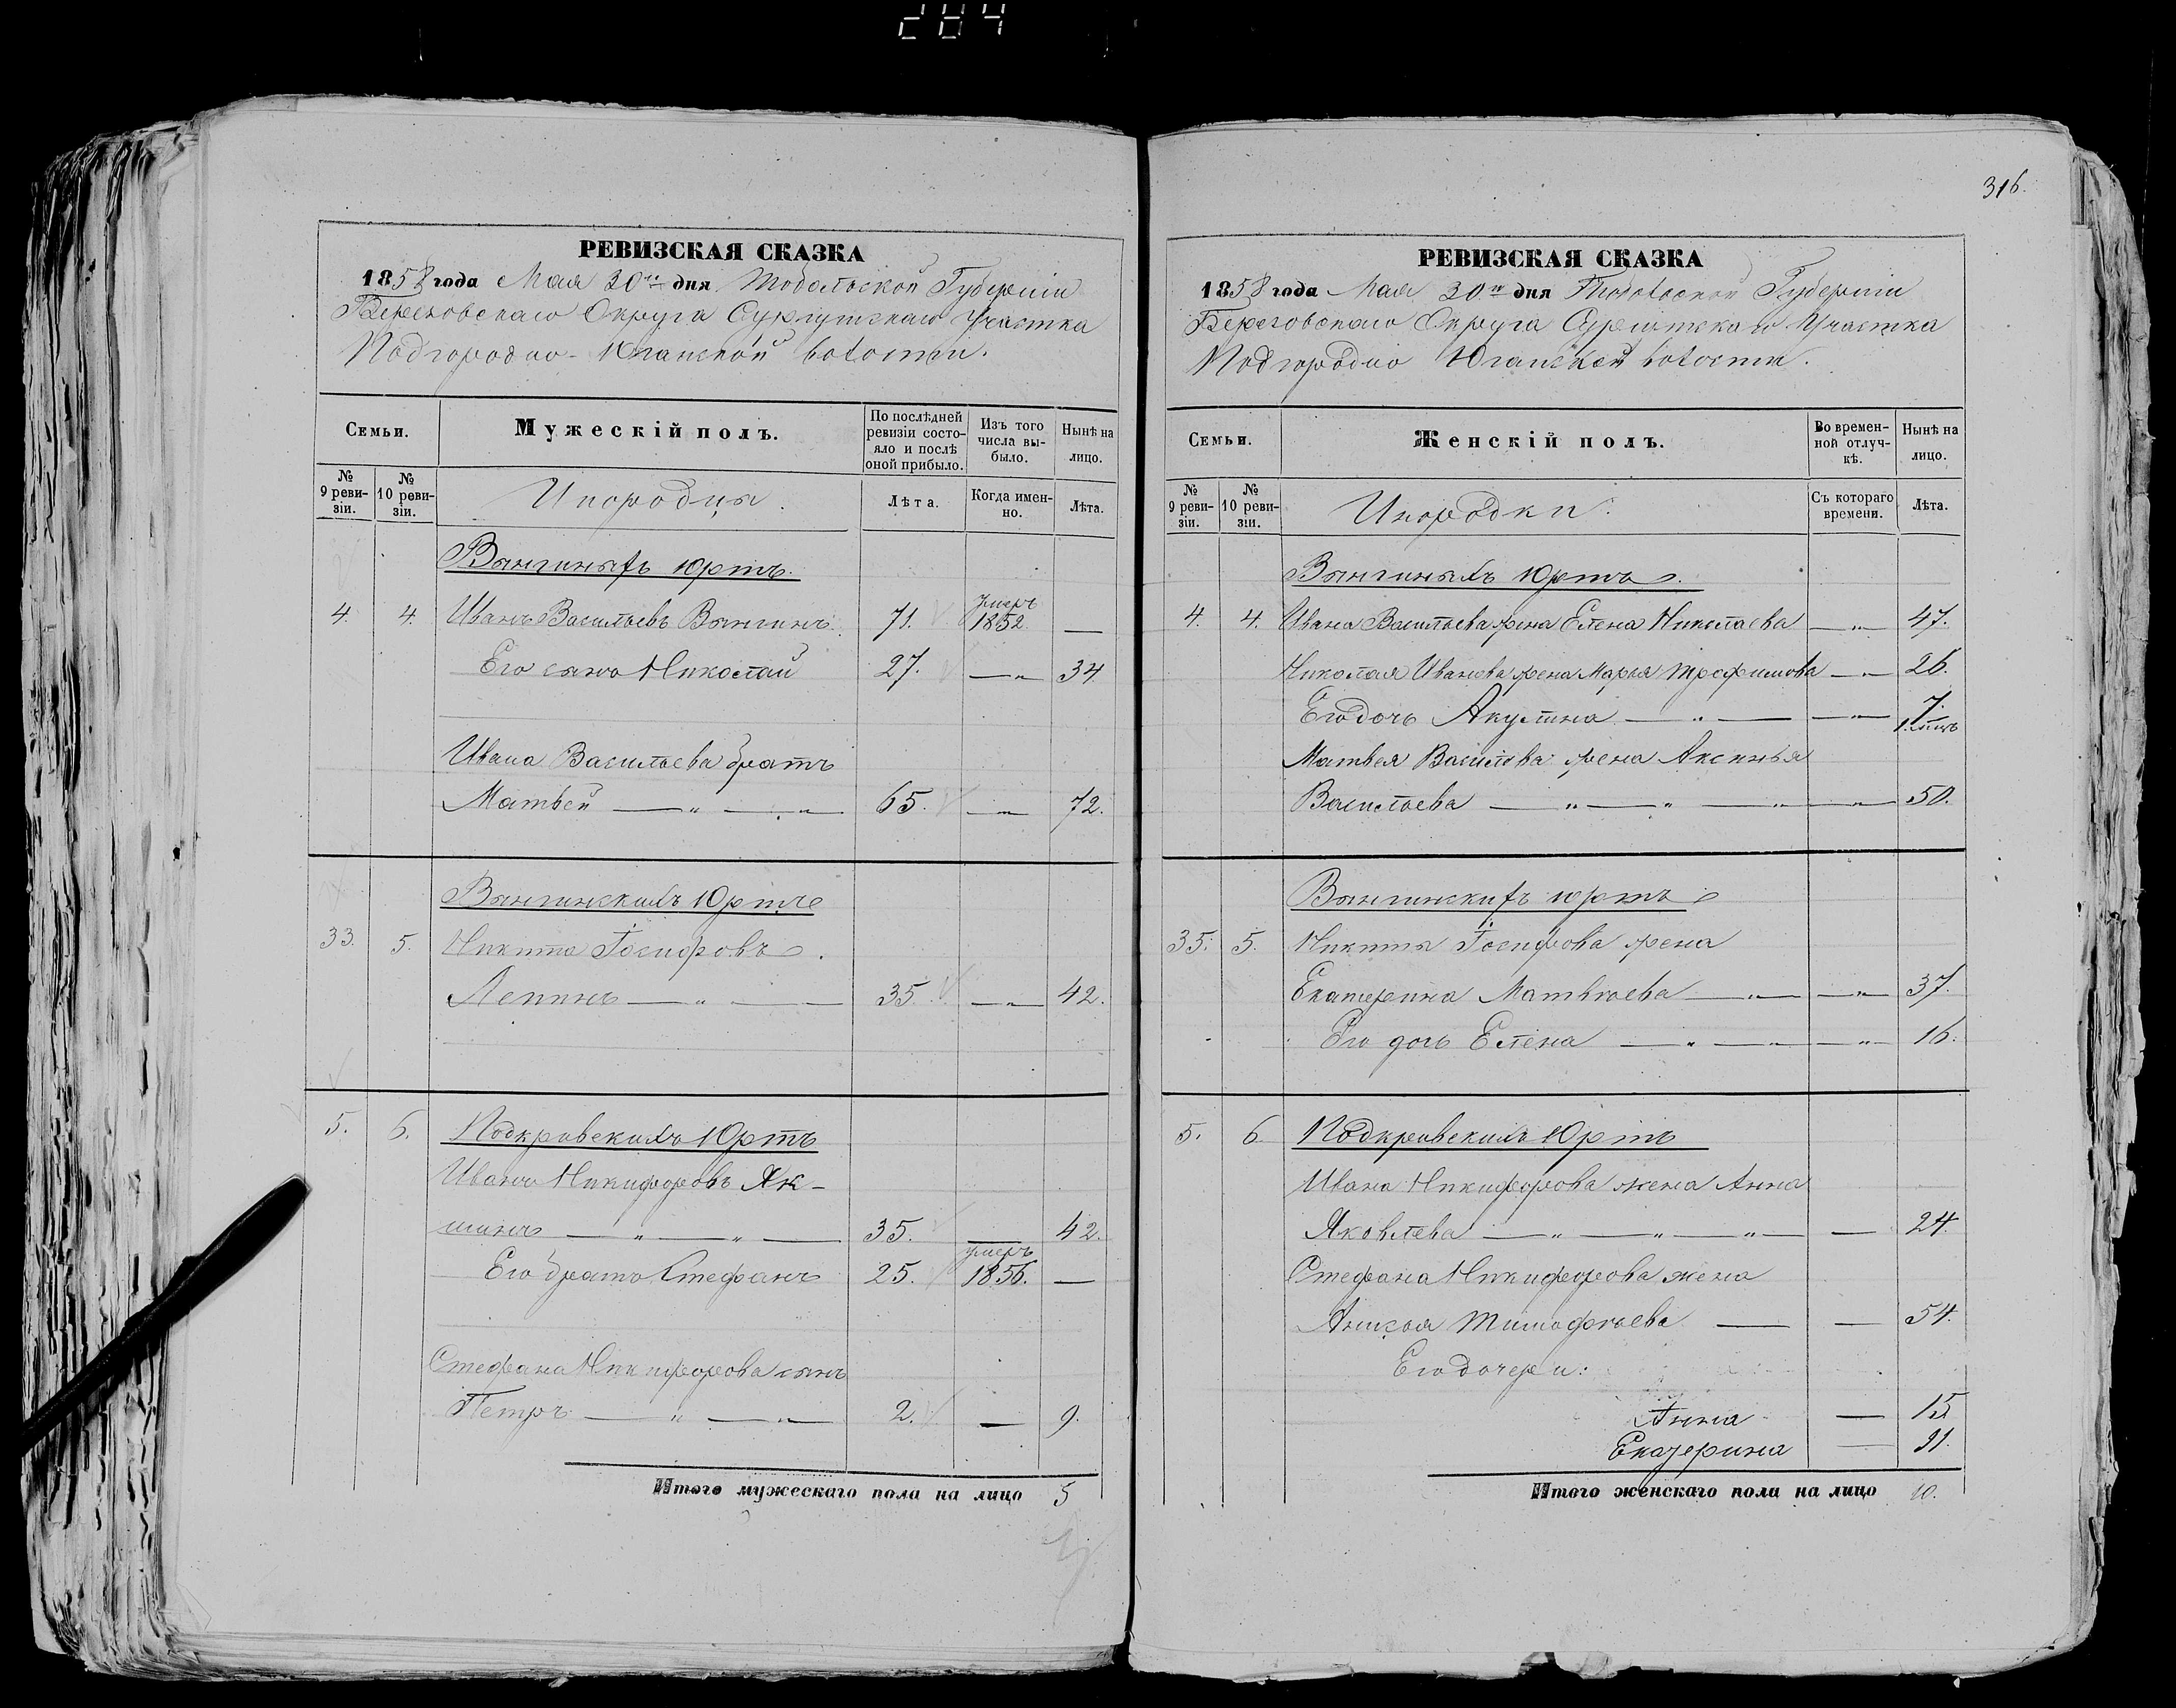 284
РЕВИЗСКАЯ СКАЗКА
1858 года Мая 30го дня Тобольской Губерніи
Березовскаго Округа Сургутскаго Участка
Подгородно-Юганской волости.
Семьи.
Мужескій полъ.
По послѣдней ревизіи состояло и послѣ оной прибыло.
Изъ того числа выбыло.
Нынѣ на лицо.
№ 9 ревизіи.
№ 10 ревизіи.
Инородцы.
Лѣта.
Когда именно.
Лѣта.
Вынгиныхъ юртъ.
4. 4. Иванъ Васильевъ Вынгинъ. 71. умеръ 1852 —
Его сынъ Николай 27. — „ 34
Ивана Васильева братъ
Матвей — „ — „ 65. — „ 72.
Вынгинскихъ Юртъ
33. 5. Никита Іосифовъ.
Лепинъ — „ — 35. — „ 42.
5. 6. Подкровскихъ Юртъ
Иванъ Никифоровъ Як-
шинъ — „ — „ — 35. — 42.
Его братъ Стефанъ 25. умеръ 1856. —
Стефана Никифорова сынъ
Петръ — „ — „ 2. — 9.
Итого мужескаго пола на лицо 5
316.
РЕВИЗСКАЯ СКАЗКА
1858 года Мая 30го дня Тобольской Губерніи
Березовскаго Округа Сургутскаго Участка
Подгородно Юганской волости.
Семьи.
Женскій полъ.
Во временной отлучкѣ.
Нынѣ на лицо.
№ 9 ревизіи.
№ 10 ревизіи.
Инородки.
Съ котораго времени.
Лѣта.
Вынгиныхъ Юртъ.
4. 4. Ивана Васильева жена Елена Николаева — „ 47.
Николая Иванова жена Марья Трофимова — „ 26.
Его дочь Акулина — „ — — „ 7.
Матвея Васильева жена Аксинья
Васильева — „ — „ — „ — „ 50.
Вынгинскихъ юртъ
35. 5. Никиты Іосифова жена
Екатерина Матвѣева — „ — — „ 37.
Его дочь Елена — „ — „ — „ 16.
5. 6 Подкровскихъ Юртъ
Ивана Никифорова жена Анна
Яковлева — „ — „ — „ — — 24.
Стефана Никифорова жена
Анисья Тимофѣева — — 54.
Его дочери:
Анна — 15
Екатерина — 21.
Итого женскаго пола на лицо 10.